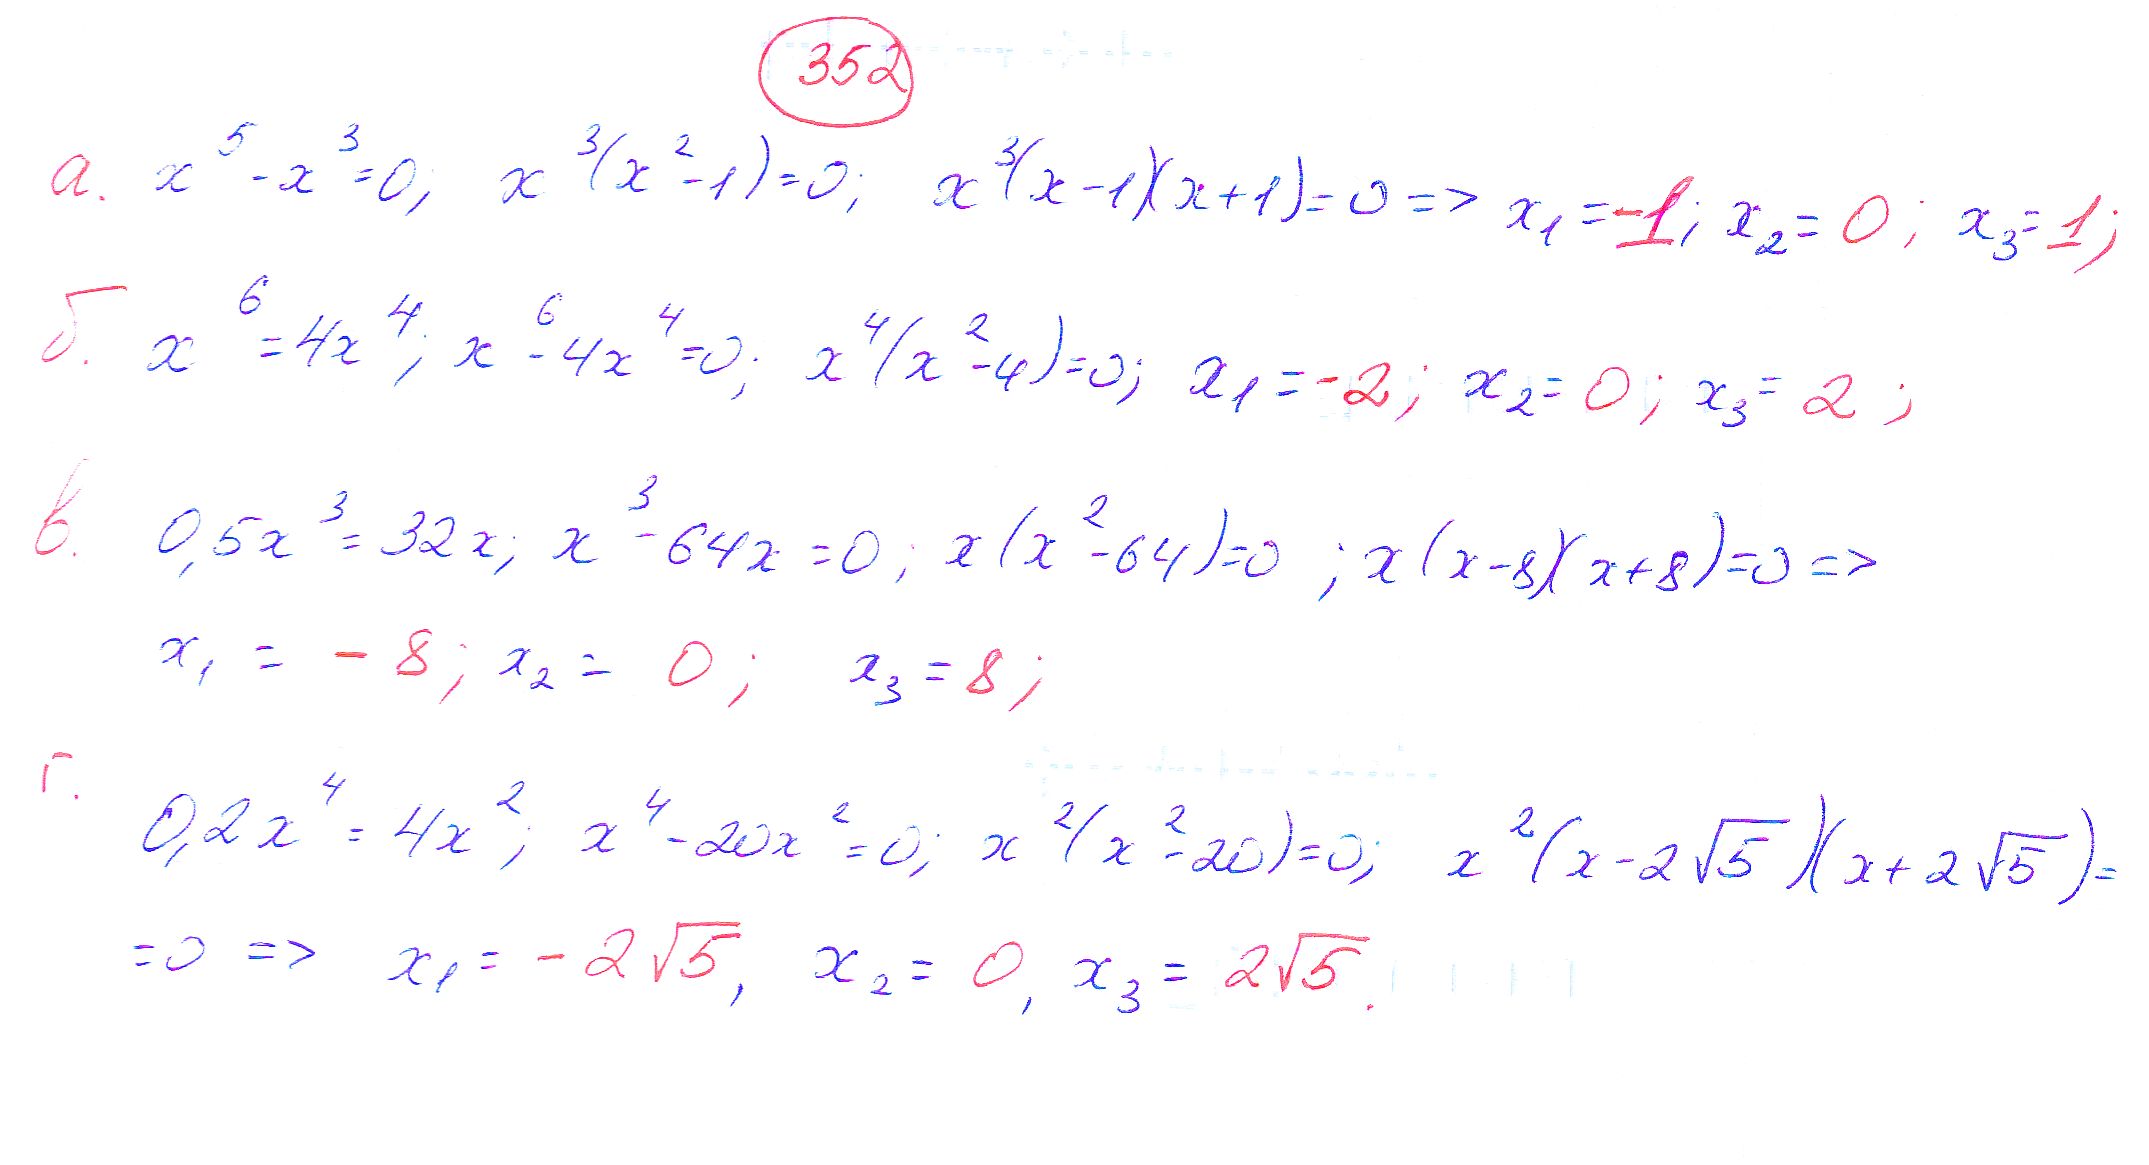 352
а. x⁵ - x³ = 0; x³(x² - 1) = 0; x³(x - 1)(x + 1) = 0 => x₁ = -1; x₂ = 0; x₃ = 1;
б. x⁶ = 4x⁴; x⁶ - 4x⁴ = 0; x⁴(x² - 4) = 0; x₁ = -2; x₂ = 0; x₃ = 2;
в. 0,5x³ = 32x; x³ - 64x = 0; x(x² - 64) = 0; x(x - 8)(x + 8) = 0 =>
x₁ = -8; x₂ = 0; x₃ = 8;
г. 0,2x⁴ = 4x²; x⁴ - 20x² = 0; x²(x² - 20) = 0; x²(x - 2√5)(x + 2√5) =
= 0 => x₁ = -2√5, x₂ = 0, x₃ = 2√5.